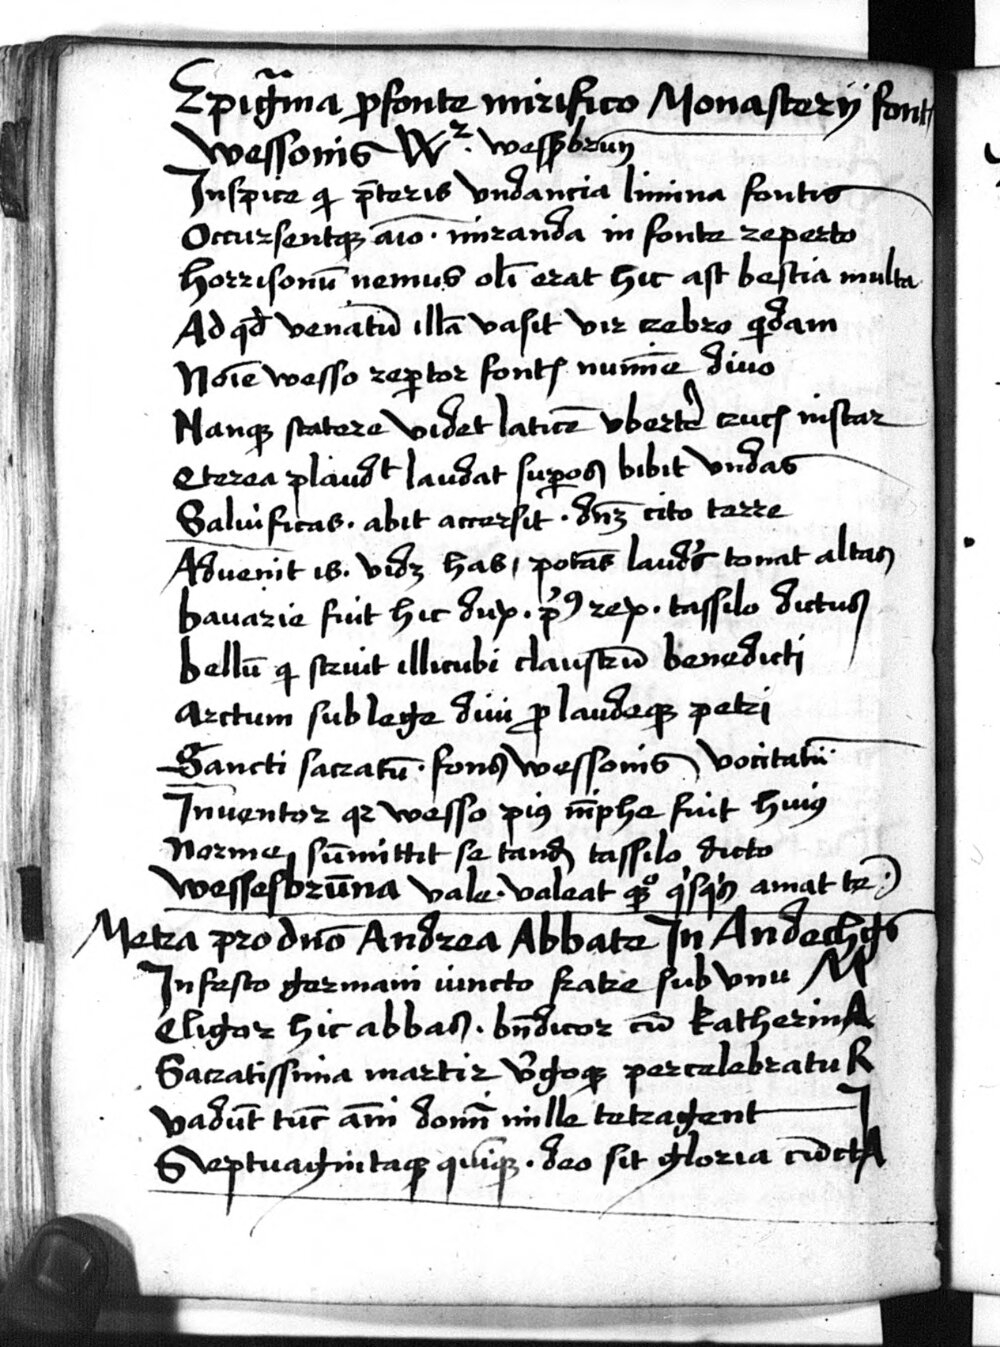 Epigr̄ma p̱fonte mirifico Monasterij font
Wessonis Wz. wesspbrun
Inspice qi p̄teris vndancia limina fontis
Occursentqꝫ aīo. miranda in fonte reperto
horrisonū nemus oli̅ erat hic ast bestia multa
Ad qd̄ venatū illā vasit vir crebro qidam
Noīe wesso rep̱tor fontꝭ numīe diuo
Nanqꝫ statere videt laticē vberte crucꝭ instar
Eterea plaudt laudat suꝑos bibit vndas
Saluificas. abit accersit. dn̄ꝫ cito terre
Aduenit is. vidꝫ has, potās laud's tonat altas
bauarie fuit hic dux. p'ꝯ rex. tassilo dictus
bellū qi struit illicubi claustrū benedicti
Arctum sub lege diui ꝓ laudeqꝫ petri
Sancti sacratū. fons wessonis vocitatū
Inuentor qr wesso piꝯ nīphe fuit huiꝯ
Norme sūmittit se tand tassilo dicto
wessesbrūna vale. valeat qꝫo q'sq's amat te :)
Metra pro dnō Andrea Abbate In Andechgs
In festo germani iuncto fratre sub vnu M
Eligor hic abbas. bn̄dicor cū KatherinA
Sacratissima martir v'goqꝫ percelebratu R
vadūt tūc āni domī mille tetragent I
Septuagintaqꝫ quīqꝫ. deo sit gloria cūctA